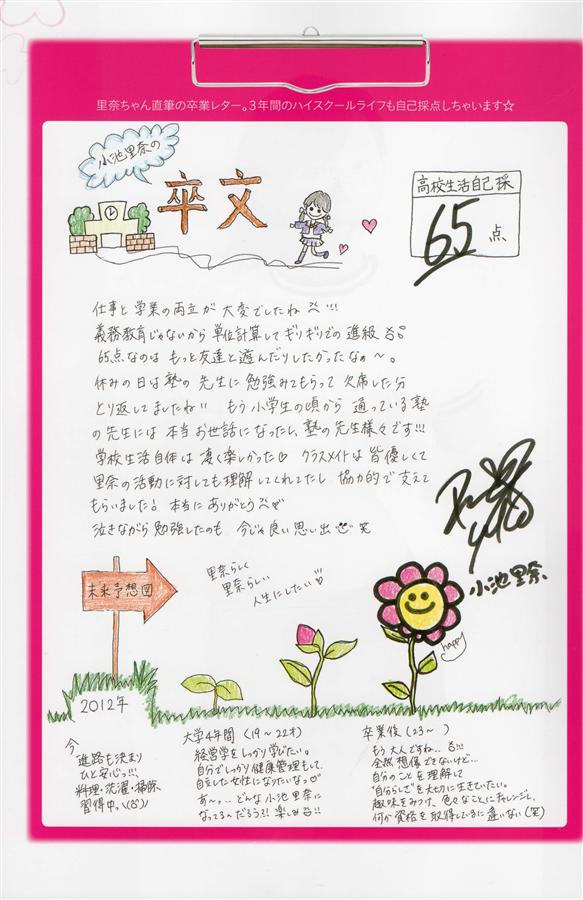 里奈ちゃん直筆の卒業レター。3年間のハイスクールライフも自己採点しちゃいます☆
小池里奈の
卒文
高校生活自己採
65点
仕事と学業の両立が大変でしたね!!!
義務教育じゃないから単位計算してギリギリでの進級
65点なのはもっと友達と遊んだりしたかったなぁ〜。
休みの日は塾の先生に勉強みてもらって欠席した分
とり返してましたね!! もう小学生の頃から通っている塾
の先生には本当お世話になったし、塾の先生様々です!!!
学校生活自体は凄く楽しかった♡ クラスメイトは皆優しくて
里奈の活動に対しても理解してくれてたし協力的で支えて
もらいました! 本当にありがとう
泣きながら勉強したのも今じゃ良い思い出 笑
小池里奈
未来予想図
里奈らしく
里奈らしい
人生にしたい♡
happy
2012年
今
進路も決まり
ひと安心っ!!!
料理・洗濯・掃除
習得中。
大学4年間 (19〜22才)
経営学をしっかり学びたい。
自分でしっかり健康管理もして、
自立した女性になりたいなっ
あ〜っ.. どんな小池里奈に
なってるんだろう?! 楽しみ!!
卒業後 (23〜 )
もう大人ですね..!!!
全然想像できないけど...
自分のことを理解して
"自分らしさ"を大切に生きていたい。
趣味をみつけ、色々なことにチャレンジし、
何か資格を取得しているに違いない(笑)